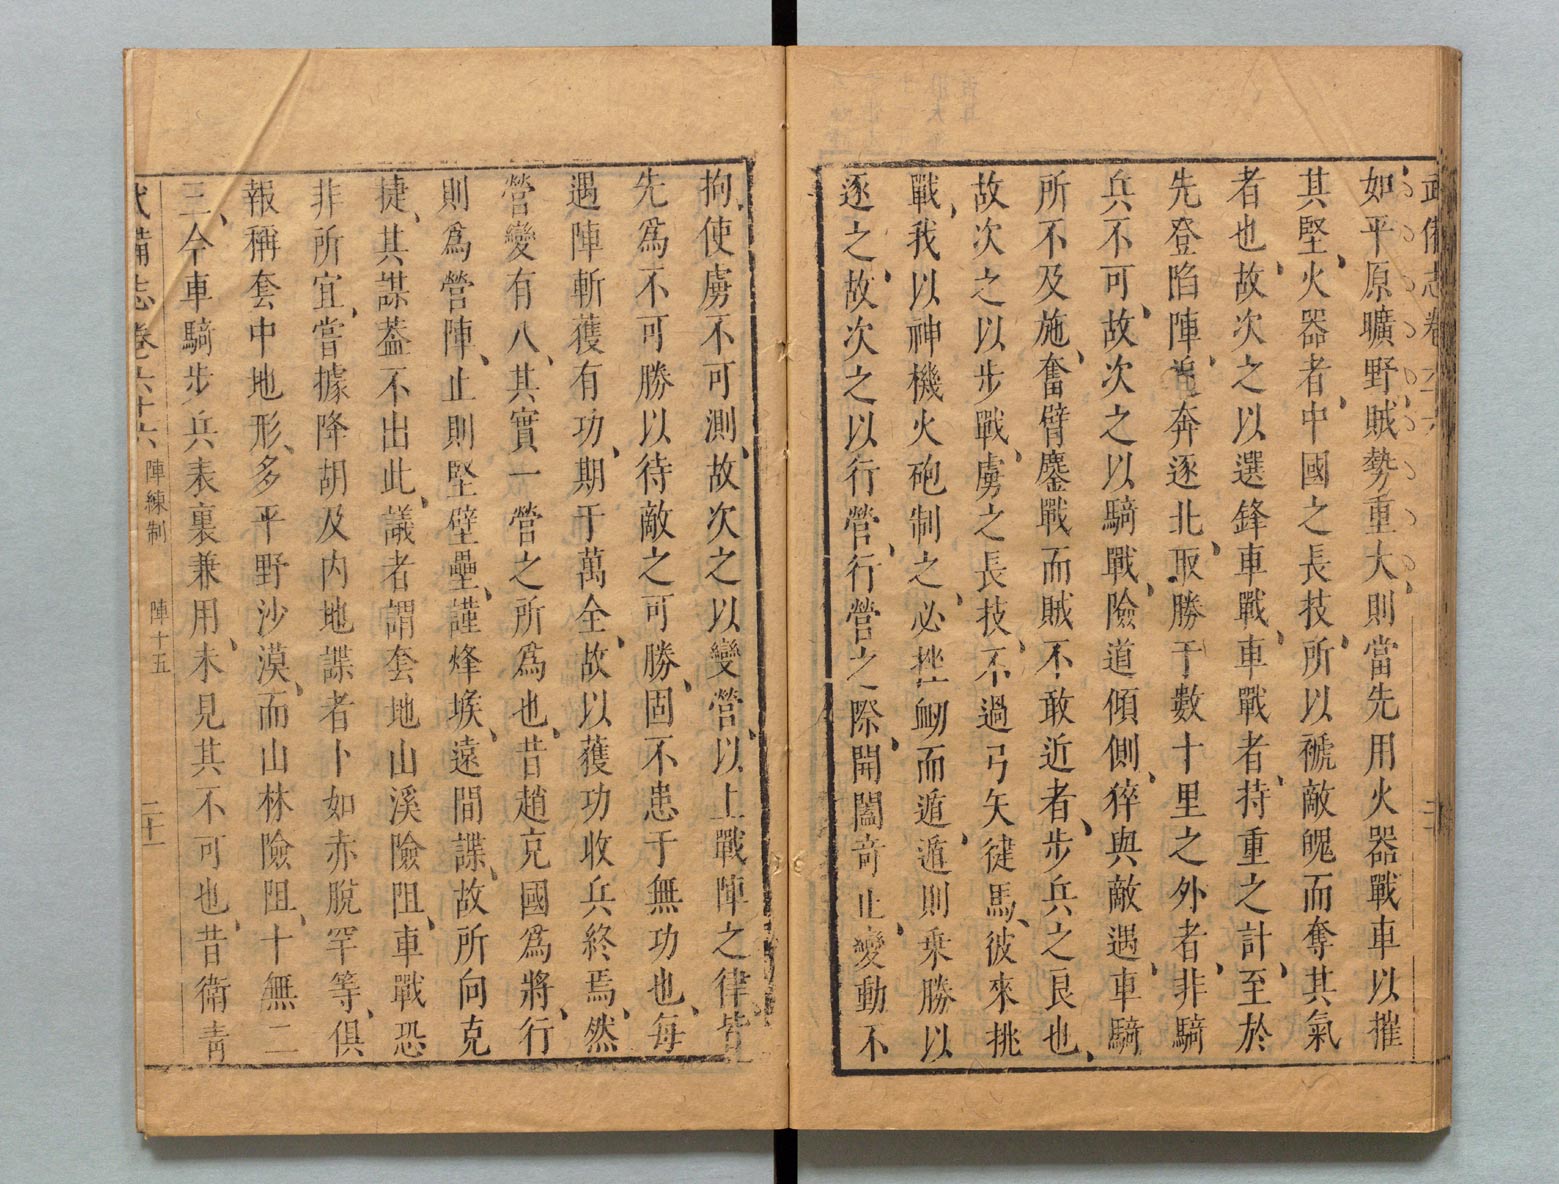 武備志卷六十六
如平原曠野賊勢重大則當先用火器戰車以摧
其堅火器者中國之長技所以褫敵魄而奪其氣
者也故次之以選鋒車戰車戰者持重之計至於
先登陷陣追奔逐北取勝于數十里之外者非騎
兵不可故次之以騎戰險道傾側猝與敵遇車騎
所不及施奮臂鏖戰而賊不敢近者步兵之良也
故次之以步戰虜之長技不過弓矢徤馬彼來挑
戰我以神機火砲制之必挫衂而遁遁則乗勝以
逐之故次之以行營行營之際開闔竒止變動不
拘使虜不可測故次之以變營以上戰陣之律皆
先爲不可勝以待敵之可勝固不患于無功也每
遇陣斬獲有功期于萬全故以獲功收兵終焉然
營變有八其實一營之所爲也昔趙克國爲將行
則爲營陣止則堅壁壘謹烽堠遠間諜故所向克
捷其謀葢不出此議者謂套地山溪險阻車戰恐
非所宜嘗據降胡及内地諜者卜如赤脫罕等俱
報稱套中地形多平野沙漠而山林險阻十無二
三今車騎步兵表裏兼用未見其不可也昔衛青
武備志卷六十六 陣練制 陣十五 二十一